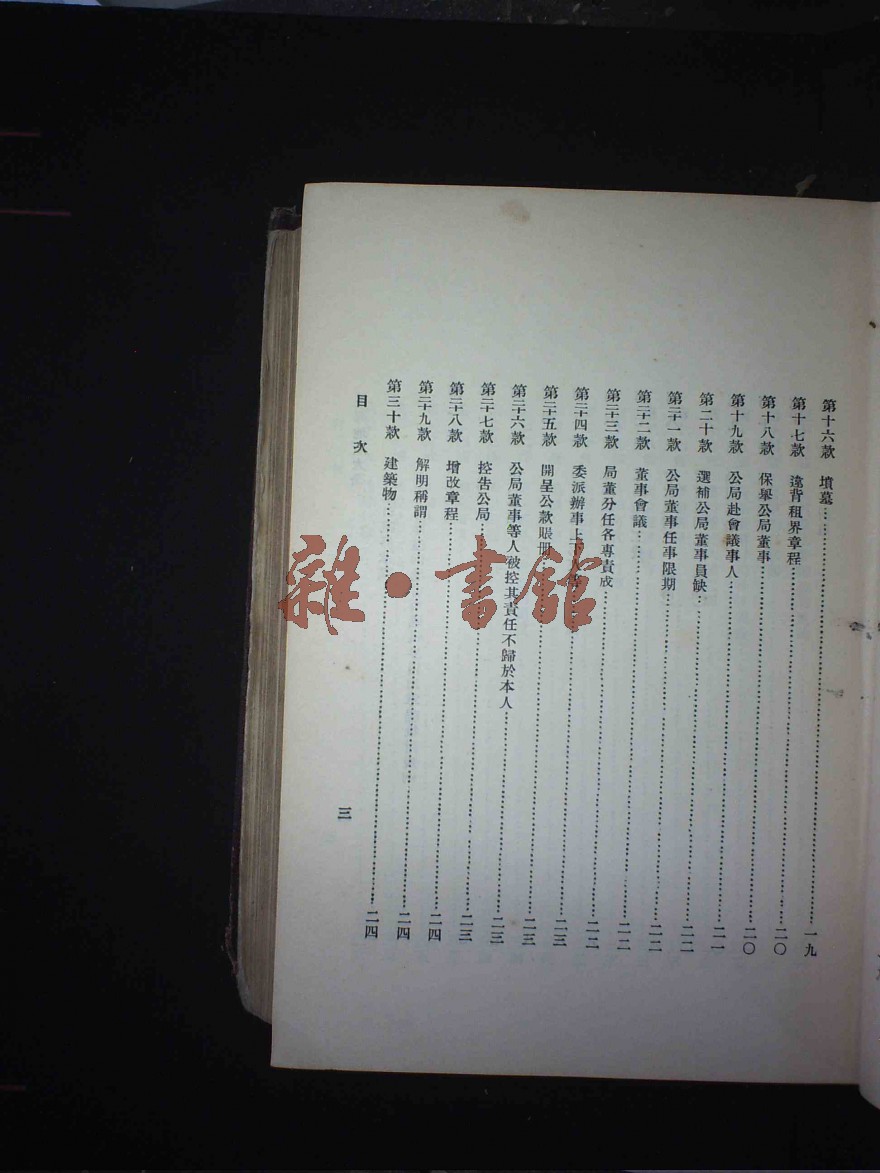 第十六款 墳墓……一九
第十七款 違背租界章程……二〇
第十八款 保舉公局董事……二〇
第十九款 公局赴會議事人……二一
第二十款 選補公局董事員缺……二二
第二十一款 公局董事任事限期……二二
第二十二款 董事會議……二二
第二十三款 局董分任各專責成……二二
第二十四款 委派辦事上……二三
第二十五款 開呈公款賬册……二三
第二十六款 公局董事等人被控其責任不歸於本人……二三
第二十七款 控告公局……二三
第二十八款 增改章程……二四
第二十九款 解明稱謂……二四
第三十款 建築物……二四
目 次
三
雜·書館